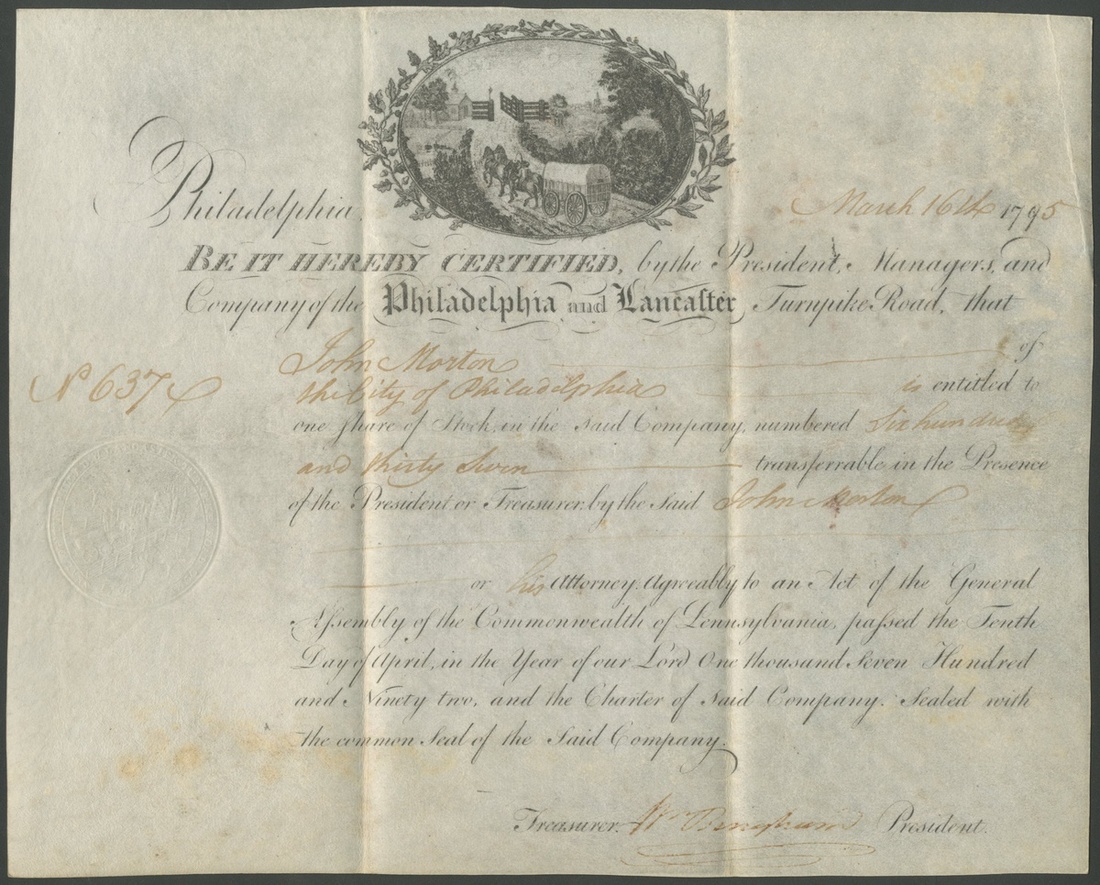 Philadelphia, March 16th 1795
BE IT HEREBY CERTIFIED, by the President, Managers, and
Company of the Philadelphia and Lancaster Turnpike Road, that
John Morton of
No 637 the City of Philadelphia is entitled to
one share of Stock, in the said Company, numbered Six hundred
and thirty Seven transferrable in the Presence
of the President or Treasurer by the said John Morton
or his Attorney. Agreeably to an Act of the General
Assembly of the Commonwealth of Pennsylvania, passed the Tenth
Day of April, in the Year of our Lord One thousand Seven Hundred
and Ninety two, and the Charter of said Company. Sealed with
the common Seal of the Said Company.
Treasurer. Wm Bingham President.